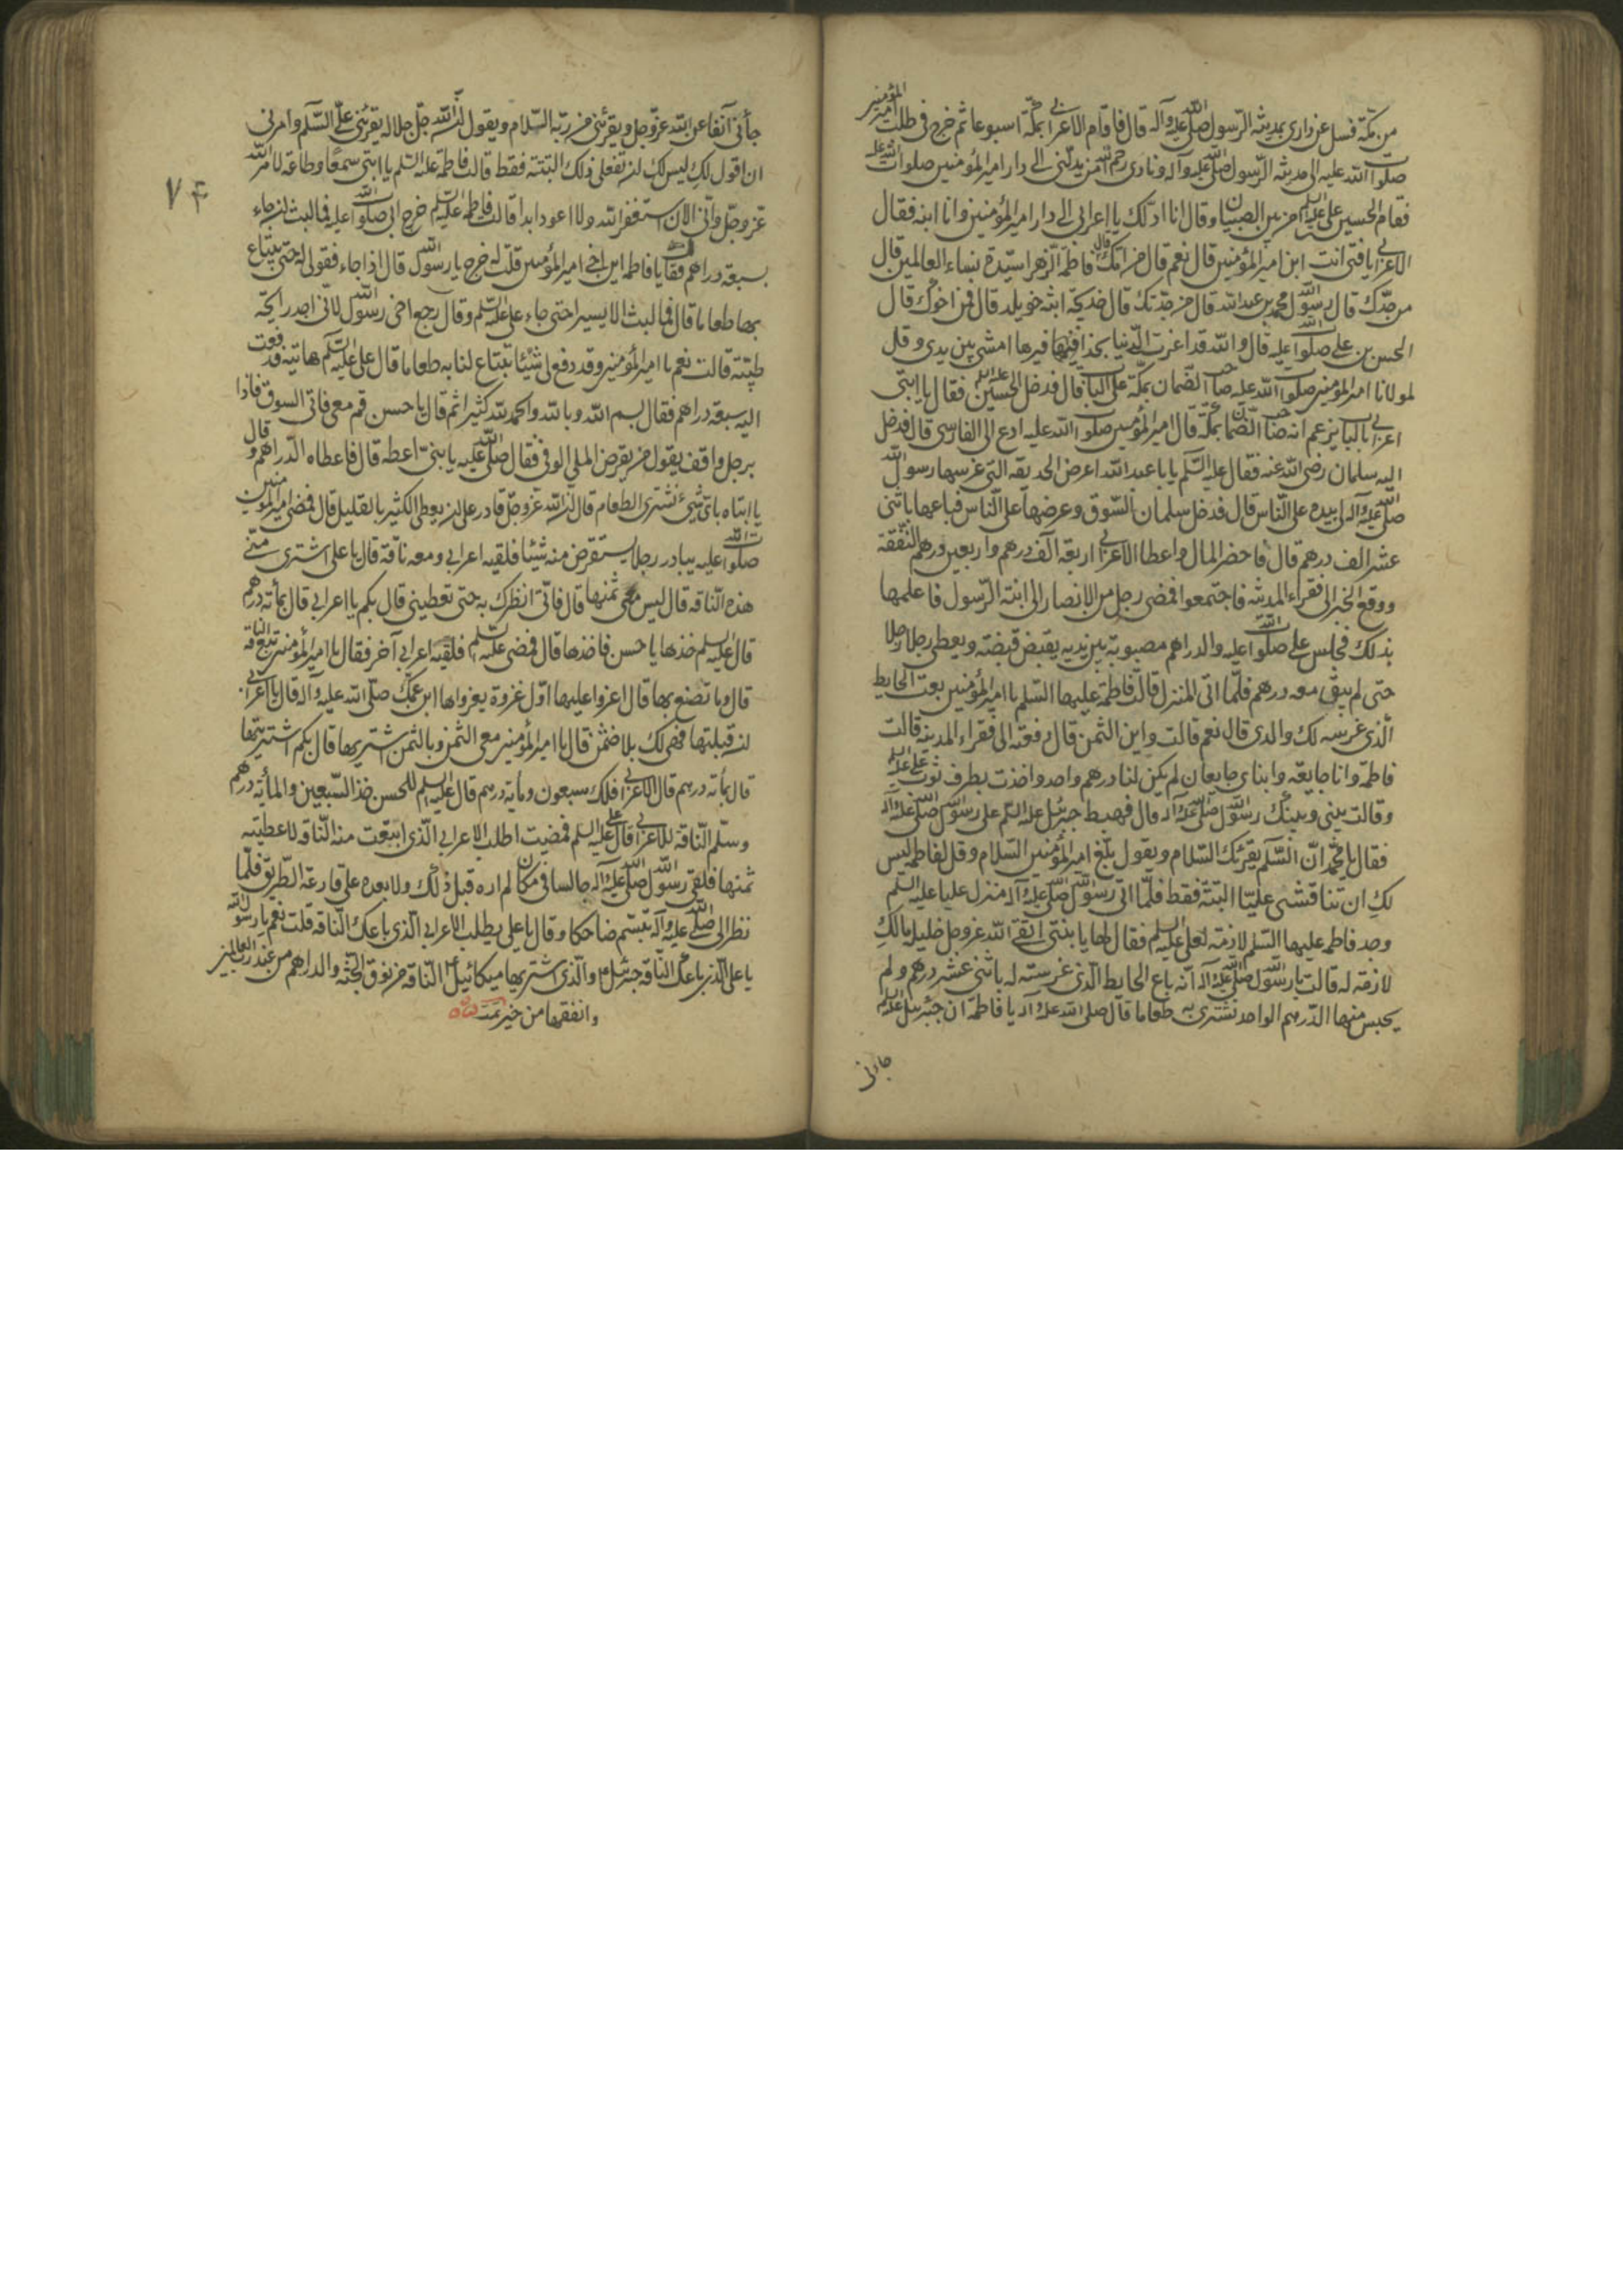 من مكة فسل عن داري بمدينة الرسول صلى الله عليه وآله قال فاقام الاعرابي بمكة اسبوعا ثم خرج في طلب امير المؤمنين
صلوات الله عليه الى مدينة الرسول صلى الله عليه وآله ونادى رحم الله من يدلني الى دار امير المؤمنين صلوات الله عليه
فقام الحسين بن علي عليه السلم من بين الصبيان وقال انا ادلك يا اعرابي الى دار امير المؤمنين وانا ابنه فقال
الاعرابي يا فتى انت ابن امير المؤمنين قال نعم قال من امك قال فاطمة الزهرا سيدة نساء العالمين قال
من جدك قال رسول الله محمد بن عبد الله قال من جدتك قال خديجة ابنة خويلد قال فمن اخوك قال
الحسن بن علي صلوات الله عليه قال والله قد اخذت الدنيا بحذافيرها امش بين يدي وقل
لمولانا امير المؤمنين صلوات الله عليه صاحب الضمان بمكة على الباب قال فدخل الحسين عليه السلم فقال يا ابتي
اعرابي بالباب يزعم انه صاحب الضمان بمكة قال امير المؤمنين صلوات الله عليه ادع لي الفارسي قال فدخل
اليه سلمان رضي الله عنه فقال عليه السلم يا با عبد الله اعرض الحديقة التي غرسها رسول الله
صلى الله عليه وآله لي بيده على الناس قال فدخل سلمان السوق وعرضها على الناس فباعها باثني
عشر الف درهم قال فاحضر المال واعطا الاعرابي اربعة آلف درهم واربعين درهم النفقة
ووقع الخبر الى فقراء المدينة فاجتمعوا فمضى رجل من الانصار الى ابنة الرسول فاعلمها
بذلك فجلس علي صلوات الله عليه والدراهم مصبوبة بين يديه يقبض قبضة ويعطي رجلا رجلا
حتى لم يبق معه درهم فلما اتى المنزل قالت فاطمة عليها السلم يا امير المؤمنين بعت الحايط
الذي غرسه لك والدي قال نعم قالت واين الثمن قال دفعته الى فقراء المدينة قالت
فاطمة وانا جايعة وابناي جايعان لم يكن لنا درهم واحد واخذت بطرف ثوب علي عليه السلم
وقالت بيني وبينك رسول الله صلى الله عليه وآله قال فهبط جبرئيل عليه السلم على رسول الله صلى الله عليه وآله
فقال يا محمد ان السلم يقرئك السلام ويقول بلغ امير المؤمنين السلام وقل لفاطمة ليس
لك ان تناقشي عليا البتة فقط فلما اتى رسول الله صلى الله عليه وآله منزل عليا عليه السلم
وجد فاطمة عليها السلم لازمة لعلي عليه السلم فقال لها يا بنتي اتقي الله عز وجل خليله مالك
لازمة له قالت يا رسول الله صلى الله عليه وآله انه باع الحايط الذي غرسته له باثني عشر درهم ولم
يحبس منها الدرهم الواحد نشتري به طعاما قال صلى الله عليه وآله يا فاطمة ان جبرئيل عليه السلم
جاءني
جائني آنفا عن الله عز وجل ويقرئني من ربه السلام ويقول ان الله جل جلاله يقرئني على السلم وامرني
ان اقول لك ليس لك ان تفعلي ذلك البتة فقط قالت فاطمة عليه السلم يا ابتي سمعا وطاعة لامر الله
عز وجل واني الان استغفر الله ولا اعود ابدا قالت فاطمة عليه السلم خرج ابي صلوات الله عليه فما لبث ان جاء
بسبعة دراهم فقال يا فاطمة اين اخي امير المؤمنين قلت له خرج يا رسول الله قال اذا جاء فقولي له حتى يبتاع
بها طعاما قال فما لبث الا يسيرا حتى جاء علي عليه السلم وقال رجع اخي رسول الله لاني اجد رائحة
طيبة قالت نعم يا امير المؤمنين وقد دفع لي شيئا تبتاع لنا به طعاما قال علي عليه السلم هاتيه فدفعت
اليه سبعة دراهم فقال بسم الله وبالله والحمد لله كثيرا ثم قال يا حسن قم معي فاتى السوق فاذا
برجل واقف يقول من يقرض الملي الوفي فقال صلوات الله عليه يا بني اعطه قال فاعطاه الدراهم وقال
يا ابتاه باي شيء نشتري الطعام قال ان الله عز وجل قادر على ان يعطي الكثير بالقليل قال فمضى امير المؤمنين
صلوات الله عليه يبادر رجلا يستقرض منه شيئا فلقيه اعرابي ومعه ناقة قال يا علي اشتري مني
هذه الناقة قال ليس معي ثمنها قال فاني انظرك به حتى تعطيني قال بكم يا اعرابي قال بمأته درهم
قال عليه السلم خذها يا حسن فاخذها قال فمضى عليه السلم فلقيه اعرابي آخر فقال يا امير المؤمنين تبيع الناقة
قال وما تصنع بها قال اغزوا عليها اول غزوة يغزواها ابن عمك صلى الله عليه وآله قال يا اعرابي
ان قبلتها فهي لك بلا ثمن قال يا امير المؤمنين معي الثمن وبالثمن اشتريها قال بكم اشتريتها
قال بمأته درهم قال الاعرابي فلك سبعون ومأية درهم قال عليه السلم للحسن خذ السبعين والمأية درهم
وسلم الناقة للاعرابي قال علي عليه السلم فمضيت اطلب الاعرابي الذي ابتعت منه الناقة لاعطيته
ثمنها فلقي رسول الله صلى الله عليه وآله جالسا في مكان لم اره قبل ذلك ولا بعده على قارعة الطريق فلما
نظر الي صلى الله عليه وآله تبسم ضاحكا وقال يا علي يطلب الاعرابي الذي باعك الناقة قلت نعم يا رسول الله
يا علي الذي باعك الناقة جبرئيل والذي اشتريها ميكائيل الناقة من نوق الجنة والدراهم من عند رب العالمين
وانفقها من خير تمت
٧۴